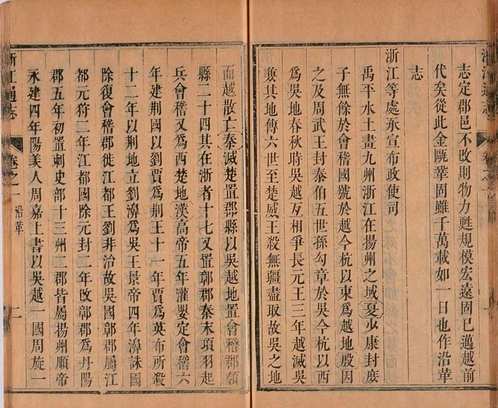 志定郡邑不改則物力甦規模宏遠固已邁越前
代矣從此金甌鞏固雖千萬載如一日也作沿革
志
浙江等處承宣布政使司
禹平水土畫九州浙江在揚州之域夏少康封庶
子無餘於會稽國號於越今杭以東爲越地殷
之及周武王封泰伯五世孫勾章於吳今杭以西
爲吳地春秋時吳越互相爭長元王三年越滅吳
兼其地傳六世至楚威王殺無疆盡取故吳之地
而越散亡秦滅楚置郡縣以吳越地置會稽郡領
縣二十四其在浙者十七又置鄣郡秦末項羽起
兵會稽又爲西楚地漢高帝五年灌嬰定會稽六
年建荆國以劉賈爲荆王十一年賈爲英布所殺
十二年以荆地立劉濞爲吳王景帝四年濞誅國
除復會稽徙江都王劉非治故吳國鄣郡屬江
都元狩二年江都國除元封二年改鄣郡爲丹陽
郡五年初置刺史部十三州二郡皆屬揚州順帝
永建四年陽羨人周嘉上書以吳越二國周旋一
浙江通志
卷之一
沿革
一